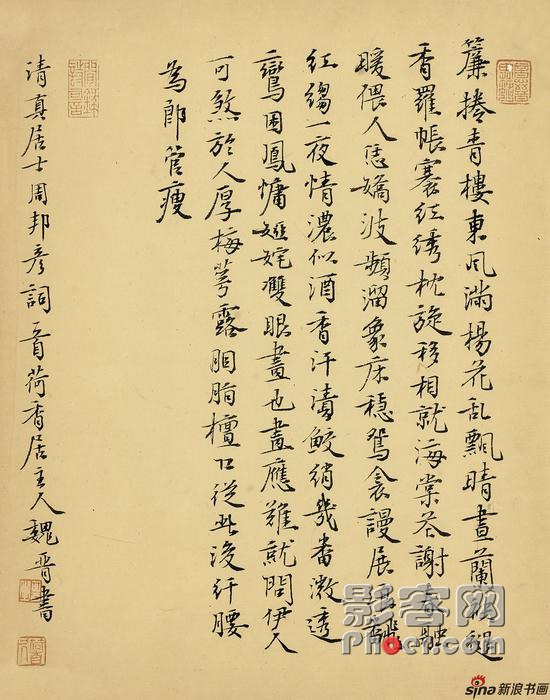 簾捲青樓東風滿楊花乱飄晴晝蘭袂褪
香羅帳褰红綉枕旋移相就海棠花謝春融
暖偎人恁嬌波頻溜象床穩鴛衾謾展浪翻
红縐一夜情濃似酒香汗漬鮫綃幾番微透
鸞困鳳慵婭姹雙眼畫也畫應難就問伊人
可煞於人厚梅萼露胭脂檀口從此後纤腰
為郎管瘦
清真居士周邦彦詞首荷香居主人魏晋書
影客网
Phoer.net
sina新浪书画